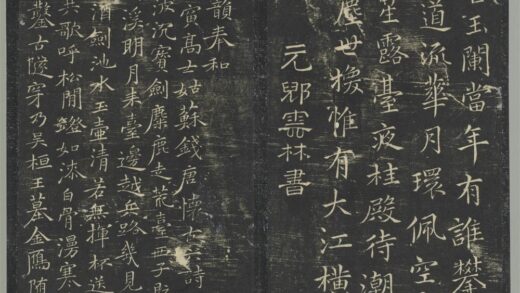 玉闌當年有誰攀
道流華月環佩空
露臺夜桂殿待潮
塵世換惟有大江橫
元雲林書
韻奉和
寅高士姑蘇錢唐懷古詩
沉寶劍麋鹿走荒臺西子
溪明月来臺邊越兵路幾見
消劍池水玉壺清若無揮杯送
共歌呼松間鐙如漆白骨澷寒
鑿古隧穿乃吳桓王墓金鴈随